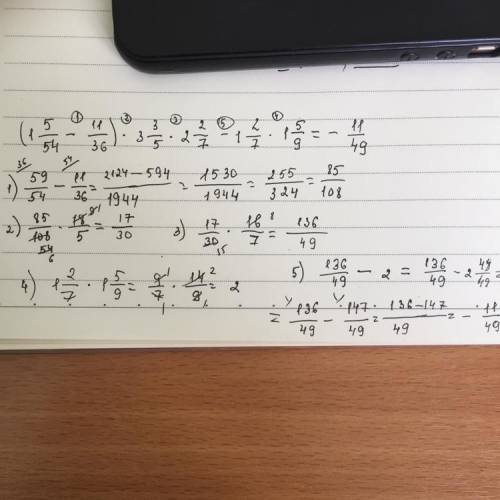 (1 5/54 - 11/36) · 3 3/5 · 2 2/7 - 1 2/7 · 1 5/9 = - 11/49
1) 59/54 - 11/36 = 2124-594/1944 = 1530/1944 = 255/324 = 85/108
2) 85/108 · 18/5 = 17/30 3) 17/30 · 16/7 = 136/49
4) 1 2/7 · 1 5/9 = 9/7 · 14/9 = 2 5) 136/49 - 2 = 136/49 - 2 49/49 =
= 136/49 - 147/49 = 136-147/49 = - 11